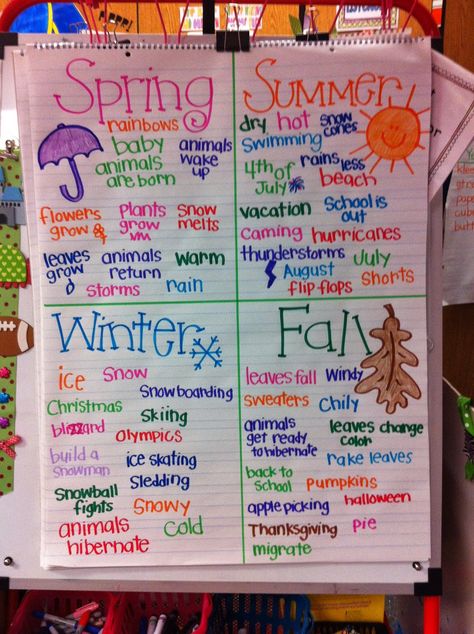 Spring
rainbows
baby
animals
are born
animals
wake
up
flowers
grow
Plants
grow
snow
melts
leaves
grow
animals
return
warm
storms
rain
Summer
dry
hot
snow
cones
Swimming
4th of
July
rains
less
beach
vacation
School is
out
caming
hurricanes
thunderstorms
July
August
flip flops
Shorts
Winter
ice
Snow
Snowboarding
Christmas
Skiing
blizzard
Olympics
build a
Snowman
ice skating
Snowball
fights
Sledding
Snowy
animals
hibernate
cold
Fall
leaves fall
Windy
sweaters
Chily
animals
get ready
to hibernate
leaves change
color
rake leaves
back to
School
pumpkins
apple picking
halloween
Thanksgiving
pie
migrate